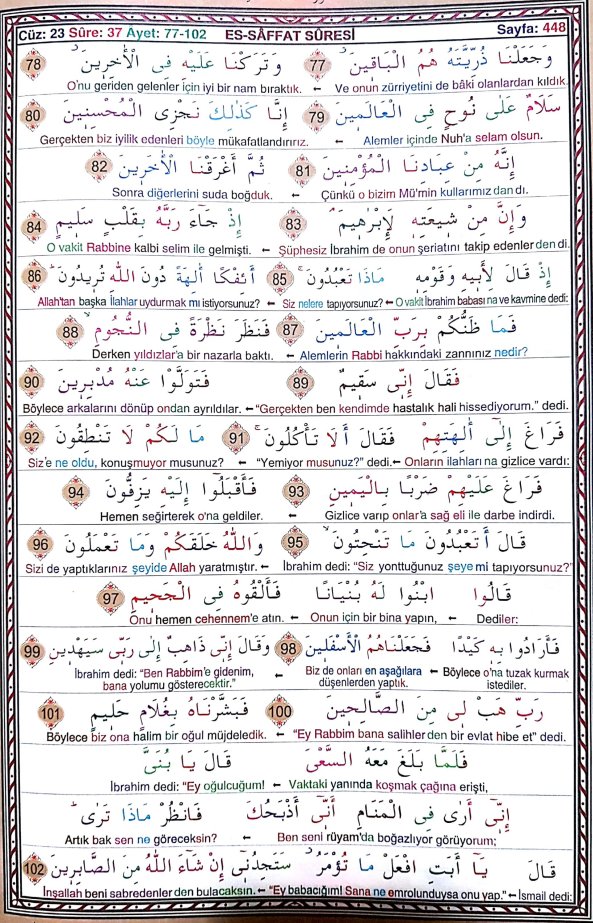 Cüz: 23 Sûre: 37 Ayet: 77-102 ES-SÂFFAT SÛRESİ Sayfa: 448
وَجَعَلْنَا ذُرِّيَّتَهُ هُمُ الْبَاقِينَ 77 وَتَرَكْنَا عَلَيْهِ فِى الْاٰخِرِينَ 78
Ve onun zürriyetini de bâki olanlardan kıldık. ← O'nu geriden gelenler için iyi bir nam bıraktık.
سَلَامٌ عَلٰى نُوحٍ فِى الْعَالَمِينَ 79 اِنَّا كَذٰلِكَ نَجْزِى الْمُحْسِنِينَ 80
Alemler içinde Nuh'a selam olsun. ← Gerçekten biz iyilik edenleri böyle mükafatlandırırız.
اِنَّهُ مِنْ عِبَادِنَا الْمُؤْمِنِينَ 81 ثُمَّ اَغْرَقْنَا الْاٰخَرِينَ 82
Çünkü o bizim Mü'min kullarımız dan dı. ← Sonra diğerlerini suda boğduk.
وَاِنَّ مِنْ شِيعَتِهِ لَاِبْرٰهِيمَ 83 اِذْ جَٓاءَ رَبَّهُ بِقَلْبٍ سَلِيمٍ 84
Şüphesiz İbrahim de onun şeriatını takip edenler den di. ← O vakit Rabbine kalbi selim ile gelmişti.
اِذْ قَالَ لِاَبِيهِ وَقَوْمِهِ مَاذَا تَعْبُدُونَ 85 اَئِفْكًا اٰلِهَةً دُونَ اللّٰهِ تُرِيدُونَ 86
O vakit İbrahim babası na ve kavmine dedi: ← Siz nelere tapıyorsunuz? ← Allah'tan başka İlahlar uydurmak mı istiyorsunuz?
فَمَا ظَنُّكُمْ بِرَبِّ الْعَالَمِينَ 87 فَنَظَرَ نَظْرَةً فِى النُّجُومِ 88
Alemlerin Rabbi hakkındaki zannınız nedir? ← Derken yıldızlar'a bir nazarla baktı.
فَقَالَ اِنّٖى سَقِيمٌ 89 فَتَوَلَّوْا عَنْهُ مُدْبِرِينَ 90
"Gerçekten ben kendimde hastalık hali hissediyorum." dedi. ← Böylece arkalarını dönüp ondan ayrıldılar.
فَرَاغَ اِلٰٓى اٰلِهَتِهِمْ فَقَالَ اَلَا تَأْكُلُونَ 91 مَا لَكُمْ لَا تَنْطِقُونَ 92
Onların ilahları na gizlice vardı: ← "Yemiyor musunuz?" dedi. ← Siz'e ne oldu, konuşmuyor musunuz?
فَرَاغَ عَلَيْهِمْ ضَرْبًا بِالْيَمِينِ 93 فَاَقْبَلُٓوا اِلَيْهِ يَزِفُّونَ 94
Gizlice varıp onlar'a sağ eli ile darbe indirdi. ← Hemen seğirterek o'na geldiler.
قَالَ اَتَعْبُدُونَ مَا تَنْحِتُونَ 95 وَاللّٰهُ خَلَقَكُمْ وَمَا تَعْمَلُونَ 96
İbrahim dedi: "Siz yonttuğunuz şeye mi tapıyorsunuz?" ← Sizi de yaptıklarınız şeyide Allah yaratmıştır.
قَالُوا ابْنُوا لَهُ بُنْيَانًا فَاَلْقُوهُ فِى الْجَحِيمِ 97
Dediler: ← Onun için bir bina yapın, ← Onu hemen cehennem'e atın.
فَاَرَادُوا بِهِ كَيْدًا فَجَعَلْنَاهُمُ الْاَسْفَلِينَ 98 وَقَالَ اِنّٖى ذَاهِبٌ اِلٰى رَبّٖى سَيَهْدِينِ 99
Böylece o'na tuzak kurmak istediler. ← Biz de onları en aşağılara düşenlerden yaptık. ← İbrahim dedi: "Ben Rabbim'e gidenim, bana yolumu gösterecektir."
رَبِّ هَبْ لٖى مِنَ الصَّالِحِينَ 100 فَبَشَّرْنَاهُ بِغُلَامٍ حَلِيمٍ 101
"Ey Rabbim bana salihler den bir evlat hibe et" dedi. ← Böylece biz ona halim bir oğul müjdeledik.
فَلَمَّا بَلَغَ مَعَهُ السَّعْىَ قَالَ يَا بُنَىَّ
Vaktaki yanında koşmak çağına erişti, ← İbrahim dedi: "Ey oğulcuğum!
اِنّٖٓى اَرٰى فِى الْمَنَامِ اَنّٖٓى اَذْبَحُكَ فَانْظُرْ مَاذَا تَرٰى
Ben seni rüyam'da boğazlıyor görüyorum; ← Artık bak sen ne göreceksin?
قَالَ يَٓا اَبَتِ افْعَلْ مَا تُؤْمَرُ سَتَجِدُنٖٓى اِنْ شَٓاءَ اللّٰهُ مِنَ الصَّابِرِينَ 102
İsmail dedi: ← "Ey babacığım! Sana ne emrolunduysa onu yap." ← İnşallah beni sabredenler den bulacaksın.